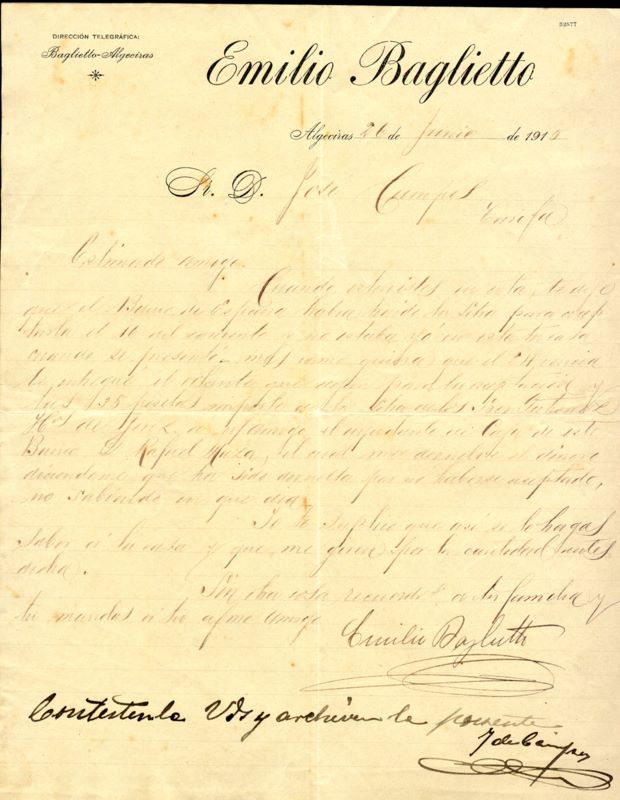 32477
DIRECCIÓN TELEGRÁFICA:
Baglietto-Algeciras
Emilio Baglietto
Algeciras 26 de Junio de 191
Sr. D. José Campos
Tarifa
Estimado amigo
Cuando estuvistes en esta, te dije
que el Banco de España había traído tu letra para acep
tarla el 16 del corriente y no estaba yo en esta tu casa
cuando se presentó mas como quiera que el
le entregué el volante que dejan para la aceptación y
las 125 pesetas importe de la letra de los
de Jerez, al
Banco D. Rafael el cual me devuelve el dinero
diciéndome que ha sido devuelta por no haberse aceptado,
no sabiendo en que dia
Yo te suplico que así se lo hagas
saber á la casa y que me giren por la cantidad antes
dicha.
Sin otra cosa recuerdos á tu familia y
tu mandas á tu afmo amigo
Emilio Baglietto
Contestenla Vds y archiven la presente
J de Campos